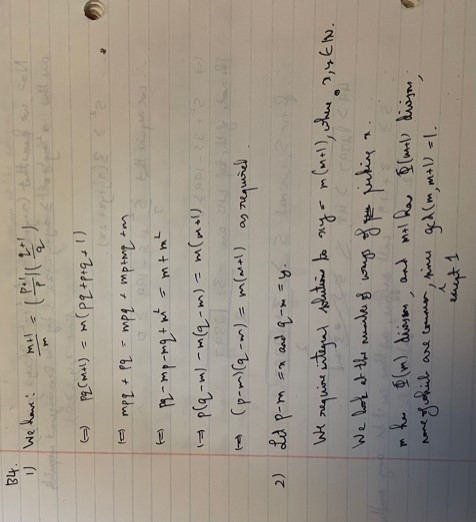 B4.
1) We have: m+1/m = (p+1/p)(q+1/q)
(=) pq(m+1) = m(pq+p+q+1)
(=) mpq + pq = mpq + mp+mq+m
(=) pq-mp-mq+m² = m+m²
(=) p(q-m) - m(q-m) = m(m+1)
(=) (p-m)(q-m) = m(m+1) as required.
2) Let p-m=x and q-m=y.
We require integral solutions to xy = m(m+1), where x,y ∈ ℕ.
We look at the number of ways of picking x.
m has Φ(m) divisors, and m+1 has Φ(m+1) divisors,
none of which are common, since gcd(m, m+1) = 1.
except 1